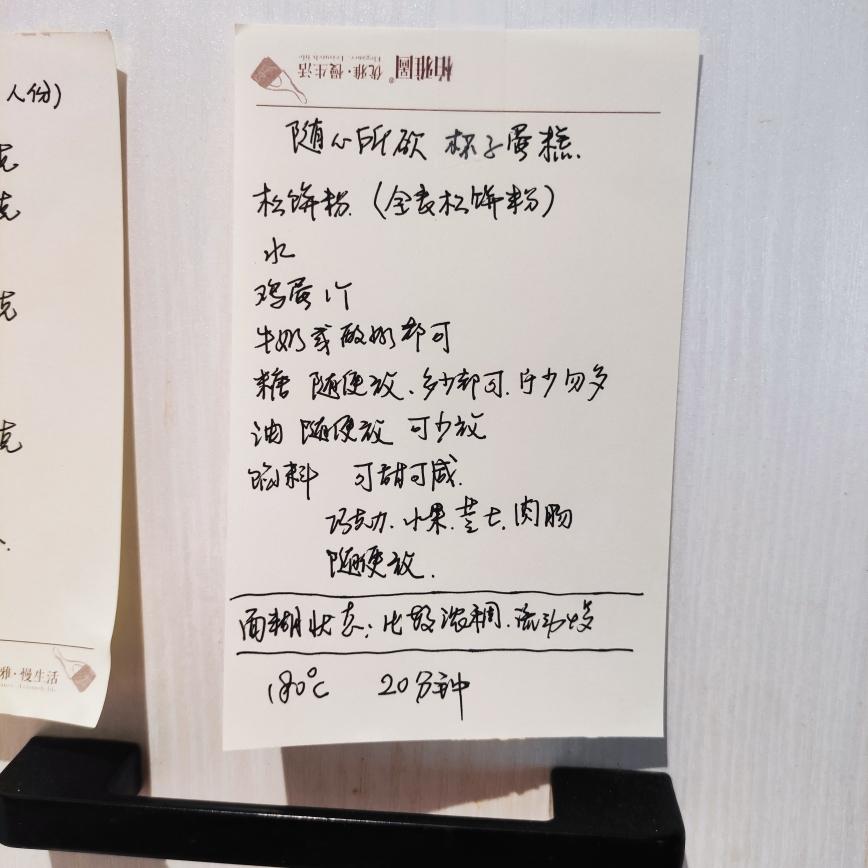 人份)
克
克
克
克
雅·慢生活
柏雅圖® 优雅·慢生活
随心所欲 杯子蛋糕.
松饼粉.（全麦松饼粉）
水
鸡蛋1个
牛奶或酸奶都可
糖 随便放、多少都可.宁少勿多
油 随便放 可少放
馅料 可甜可咸.
巧克力.水果.芝士.肉肠
随便放.
面糊状态: 比较浓稠.流动
180°C 20分钟